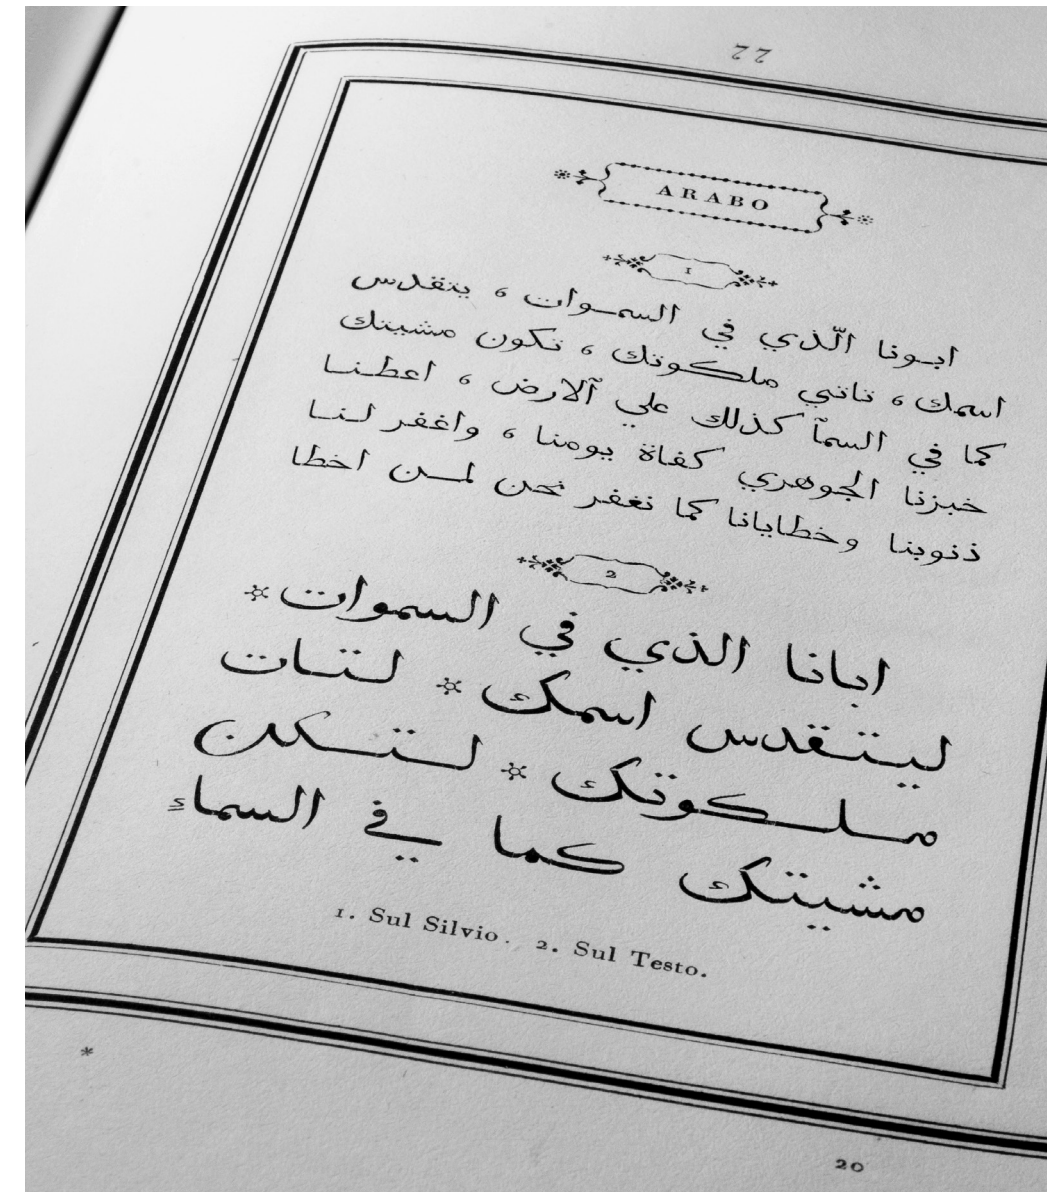 77
ARABO
1
ابونا الّذي في السموات ، يتقدس
اسمك ، تاتي ملكوتك ، تكون مشيتك
كما في السمآ كذلك علي آلارض ، اعطنا
خبزنا الجوهري كفاة يومنا ، واغفر لنا
ذنوبنا وخطايانا كما نغفر نحن لمن اخطا
2
ابانا الذي في السموات *
ليتقدس اسمك * لتات
ملكوتك * لتكن
مشيتك كما في السماء
1. Sul Silvio. 2. Sul Testo.
*
20